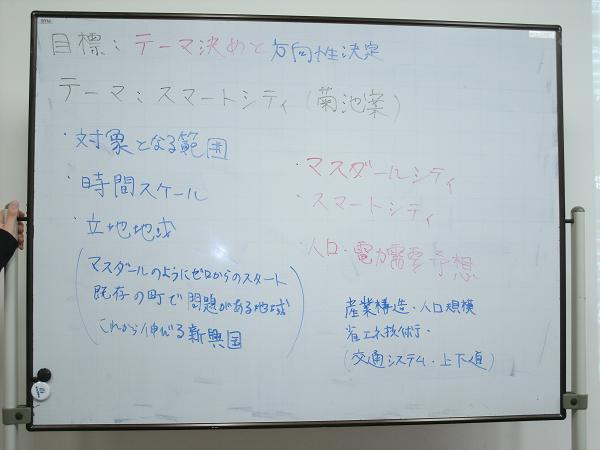 目標：テーマ決めと方向性決定
テーマ：スマートシティ（菊池案）
・対象となる範囲
・時間スケール
・立地地域
（マスダールのようにゼロからのスタート
既存の町で問題がある地域
これから伸びる新興国）
・マスダールシティ
・スマートシティ
・人口・電力需要予想
産業構造・人口規模
省エネ技術・
（交通システム・上下値）